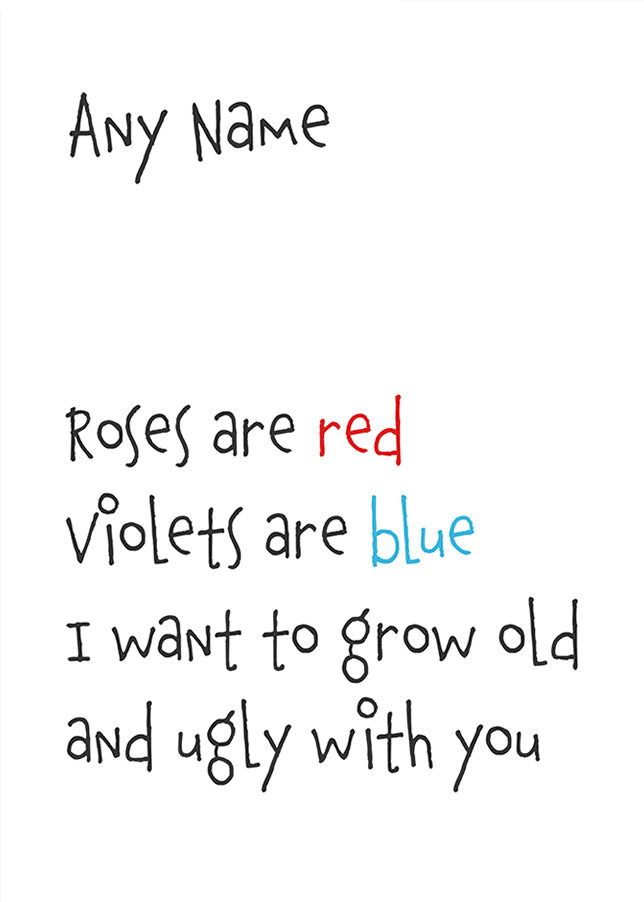 Any Name
Roses are red
Violets are blue
I want to grow old
and ugly with you